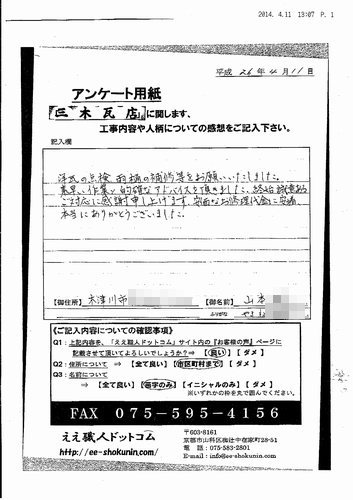 2014. 4.11 13:07 P. 1
平成 26年 4月 11日
アンケート用紙
『三木瓦店』に関します、
工事内容や人柄についての感想をご記入下さい。
記入欄
の点検 の補修等をお願いいたしました。
素早い作業と的確なアドバイスを頂きました。終始誠意ある
ご対応に感謝申し上げます。 お修理代金に
本当にありがとうございました。
【御住所】 木津川市 【御名前】 山本
ふりがな やまも
《ご記入内容についての確認事項》
Q1:上記内容を、「ええ職人ドットコム」サイト内の『お客様の声』ページに
記載させて頂いてよろしいでしょうか?⇒ 【良い】 【ダメ】
Q2:住所について ⇒ 【全て良い】【市区町村まで】 【ダメ】
Q3:名前について
⇒ 【全て良い】【苗字のみ】【イニシャルのみ】【ダメ】
※いずれかの枠を丸で囲んでください。
FAX 075-595-4156
ええ職人ドットコム
http://ee-shokunin.com/
〒603-8161
京都市山科区 28-51
電話:075-583-2801
E-mail:info@ee-shokunin.com